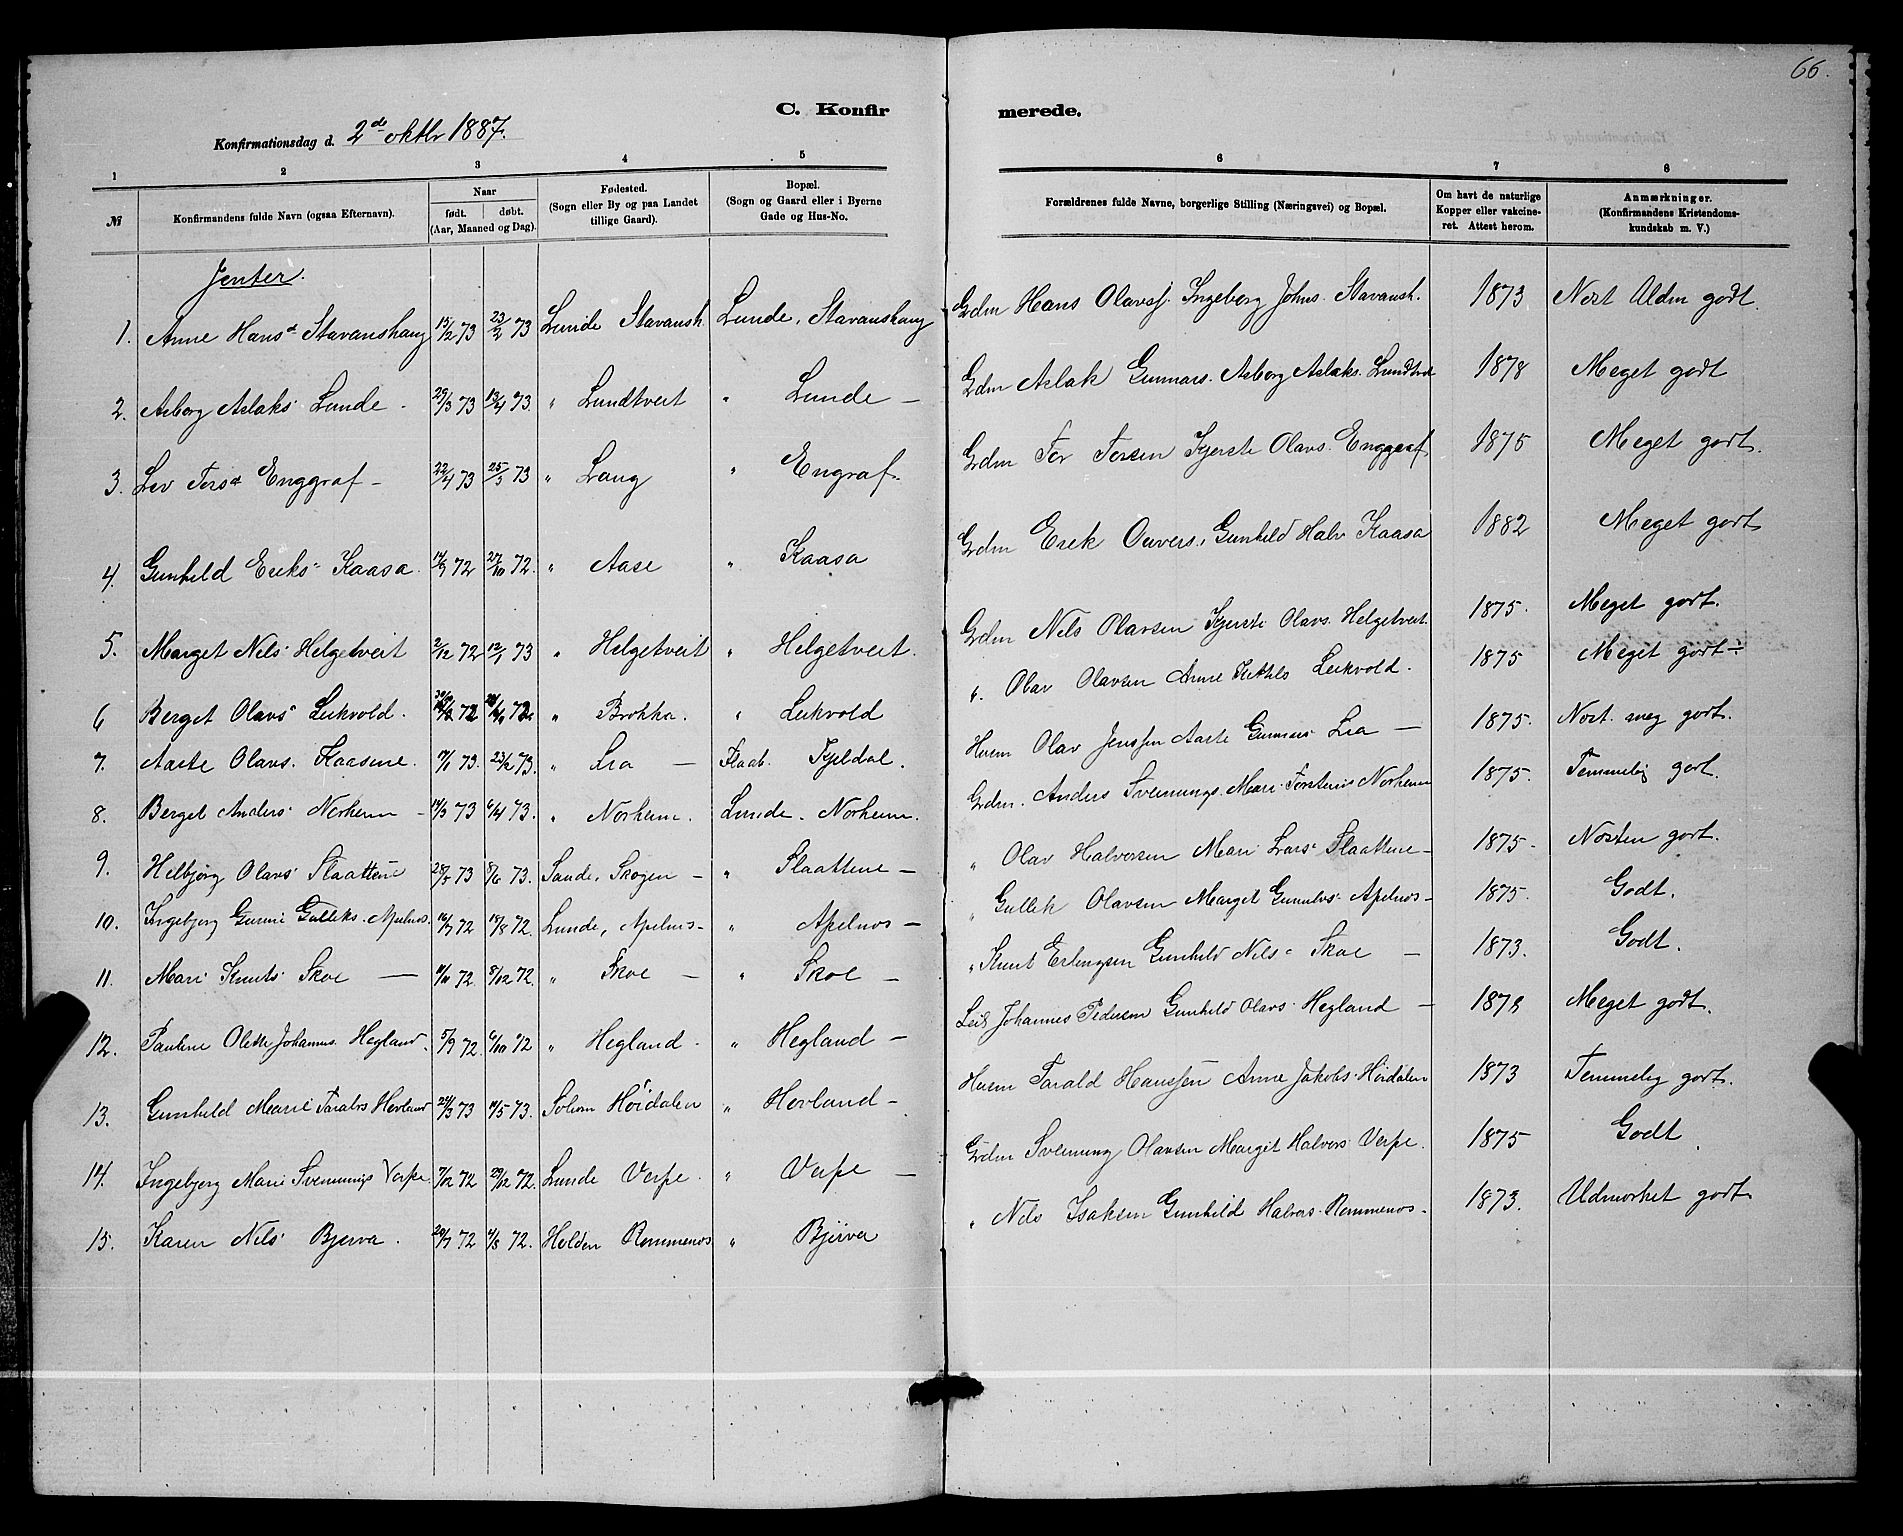 66.
C. Konfirmerede.
Konfirmationsdag d. 2d oktbr 1887.
1 2 3 4 5 6 7 8
№
Konfirmandens fulde Navn (ogsaa Efternavn).
Naar født. døbt. (Aar, Maaned og Dag).
Fødested. (Sogn eller By og paa Landet tillige Gaard).
Bopæl. (Sogn og Gaard eller i Byerne Gade og Hus-No.
Forældrenes fulde Navne, borgerlige Stilling (Næringsvei) og Bopæl.
Om havt de naturlige Kopper eller vakcineret. Attest herom.
Anmærkninger. (Konfirmandens Kristendomskundskab m. V.)
Jenter.
1. Anne Hansd Stavanshaug 15/2 73 23/2 73 Lunde Stavansh. Lunde, Stavanshaug Grdm Hans Olavss. Ingeborg Johns. Stavansh. 1873 Nest Uldm godt.
2. Asborg Aslaks Lunde 29/3 73 13/4 73. " Lundtveit " Lunde — Grdm Aslak Gunnars. Asborg Aslaks. Lundtveit 1878 Meget godt
3. Liv Torsd Enggraf — 22/4 73 25/5 73 " Laug " Engraf. Grdm Tor Torsen Kjersti Olavs. Enggraf 1875 Meget godt.
4. Gunhild Eriks Kaasa. 17/9 72 27/10 72. " Aase " Kaasa Grdm Erik Ouvers. Gunhild Halv Kaasa 1882 Meget godt
5. Marget Nils Helgetveit 2/12 72 12/1 73 " Helgetveit " Helgetveit. Grdm Nils Olavsen Kjersti Olavs. Helgetveit. 1875. Meget godt.
6 Berget Olavs Leikvold. 72 72 " Brokka. " Leikvold " Olav Olavsen Anne Kittils Leikvold. 1875 Meget godt —
7. Aaste Olavs. Kaasene. 73. 23/2 73. " Lia — Flaab. Kjeldal. Husm Olav Jenssen Aaste Gunnars Lia — 1875. Nost. meg godt.
8. Berget Anders Norheim — 14/3 73 6/4 73. " Norheim. Lunde. Norheim. Grdm. Anders Svennungs. Mari Torsteins Norheim 1875. Temmelig godt.
9. Helbjørg Olavs Slaattene 28/5 73 8/6 73. Sande, Skogen — " Slaattene — " Olav Halvorsen Mari Lars Slaattene — 1875. Nosten godt.
10. Ingebjørg Gurine Gulleks. Apelnes. 16/7 72 18/8 72. Lunde, Apelnes — " Apelnos — " Gullek Olavsen Marget Gunulvs Apelnos — 1875. Godt.
11. Mari Knuts Skoe — 72. 8/12 72. " Skoe — " Skoe — " Knut Erlingsen Gunhild Nils Skoe — 1873. Godt.
12. Pauline Olette Johannes. Hegland. 5/9 72. 6/10 72 " Hegland. " Hegland — Leil Johannes Pedersen Gunhild Olavs Hegland — 1872 Meget godt.
13. Gunhild Marie Taralds Hovland 24/3 73 11/5 73. Solum Höidalen " Hovland — Husm Tarald Hanssen Anne Jakobs Höidalen 1873 Temmelig godt.
14. Ingebjørg Marie Svennungs Verpe 7/12 72 29/12 72. Lunde Verpe. " Verpe — Grdm Svennung Olavsen Marget Halvors Verpe. 1875 Godt.
15. Karen Nils Bjerva. 20/7 72 4/8 72. Holden Rommenos " Bjerva " Nils Isaksen Gunhild Halvors. Rommenos. 1873. Udmerket godt